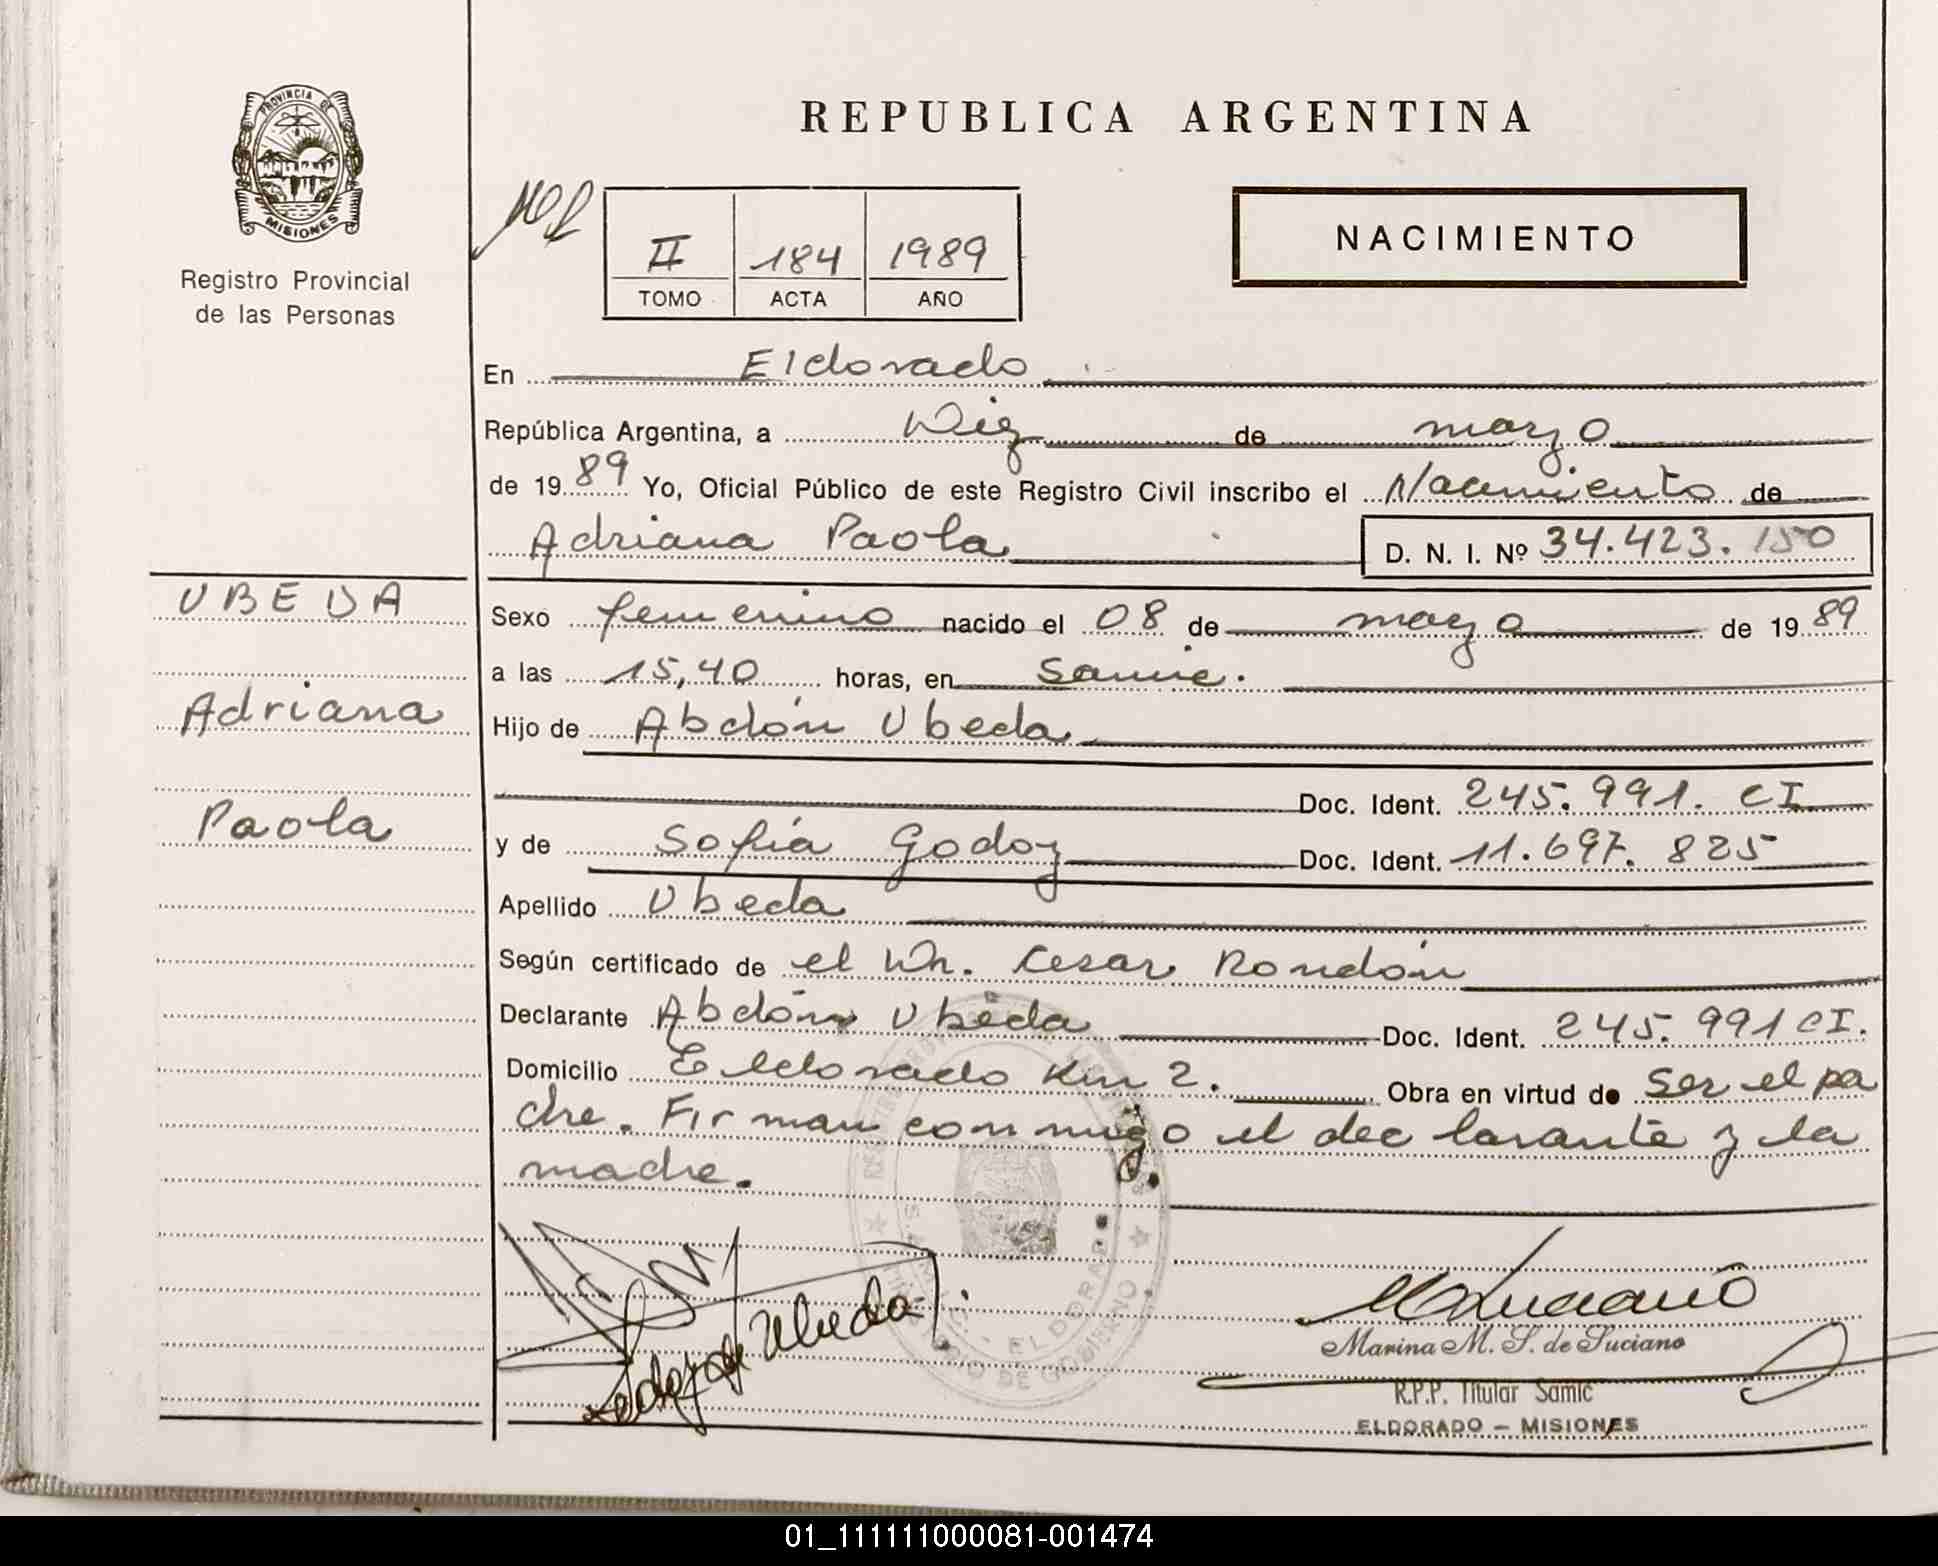 PROVINCIA DE
MISIONES
Registro Provincial
de las Personas
REPUBLICA ARGENTINA
II 184 1989
TOMO ACTA AÑO
NACIMIENTO
En Eldorado
República Argentina, a Diez de marzo
de 1989 Yo, Oficial Público de este Registro Civil inscribo el Nacimiento de
Adriana Paola
D. N. I. Nº 34.423.150
UBEDA
Adriana
Paola
Sexo femenino nacido el 08 de marzo de 1989
a las 15,40 horas, en Samic.
Hijo de Abdón Ubeda
Doc. Ident. 245.991. CI
y de Sofía Godoy Doc. Ident. 11.697.825
Apellido Ubeda
Según certificado de el Dr. Cesar Rondón
Declarante Abdón Ubeda Doc. Ident. 245.991 CI.
Domicilio Eldorado Km 2. Obra en virtud de Ser el pa
dre. Firman conmigo el declarante y la
madre.
ELDORADO
DE GOBIERNO
Ubeda
M Luciano
Marina M. S. de Luciano
R.P.P. Titular Samic
ELDORADO - MISIONES
01_111111000081-001474